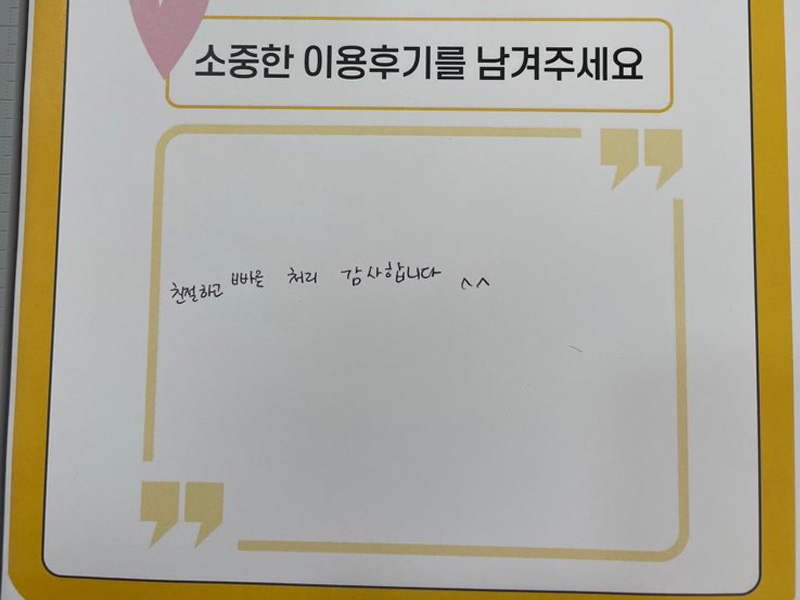 소중한 이용후기를 남겨주세요
친절하고 빠른 처리 감사합니다 ^^